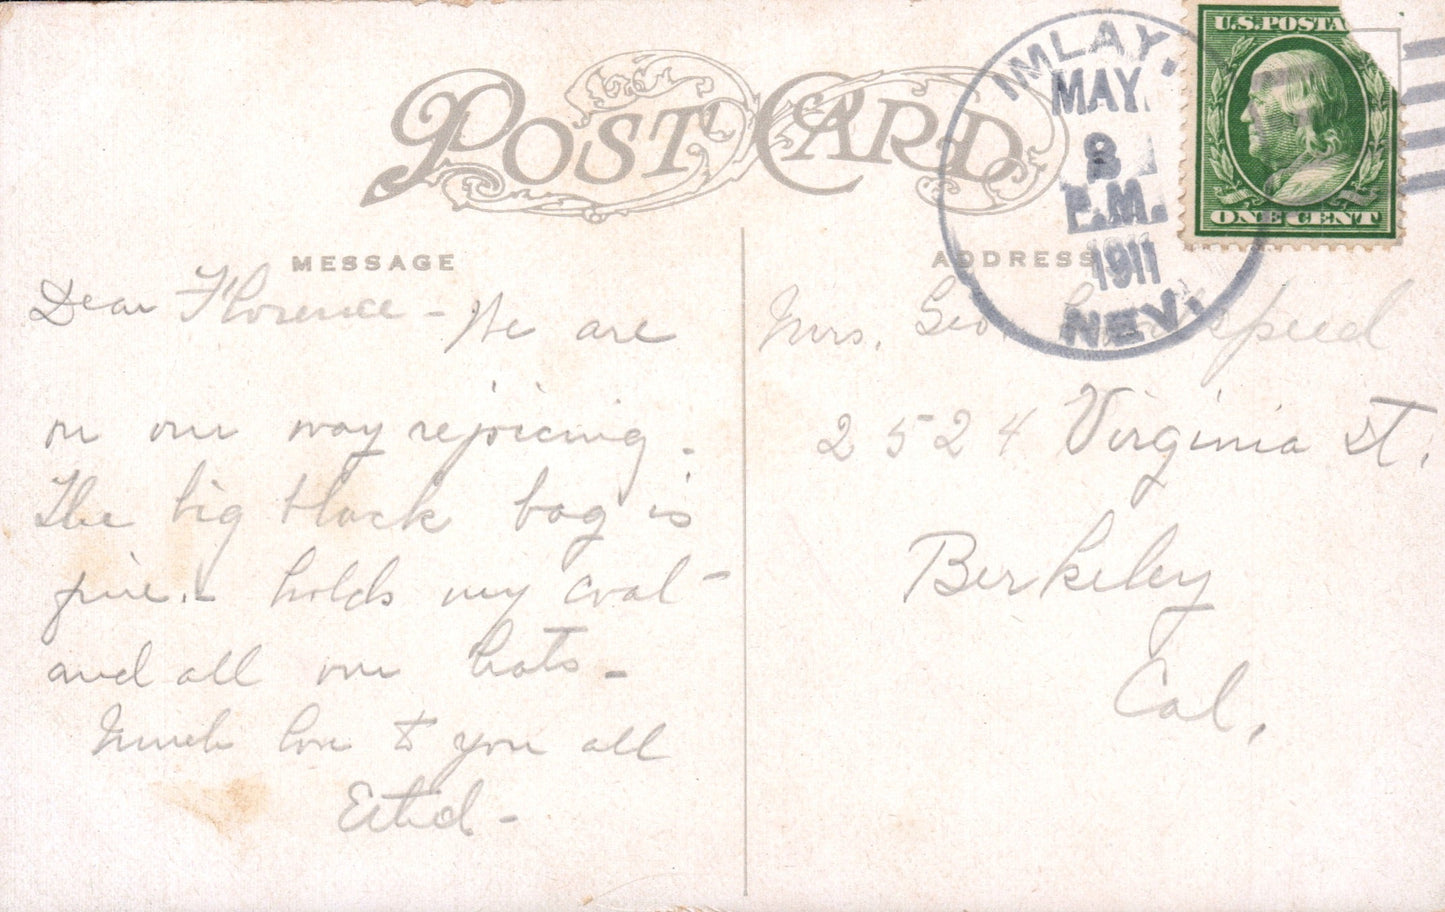 POST CARD
IMLAY.
MAY.
8
P.M.
1911
NEV.
U.S. POSTA
ONE CENT
MESSAGE
Dear Florence - We are
on our way rejoicing.
The big black bag is
fine. - holds my coat -
and all our hats -
Much love to you all
Ethel -
ADDRESS
Mrs. Geo.
2524 Virginia St.
Berkeley
Cal.